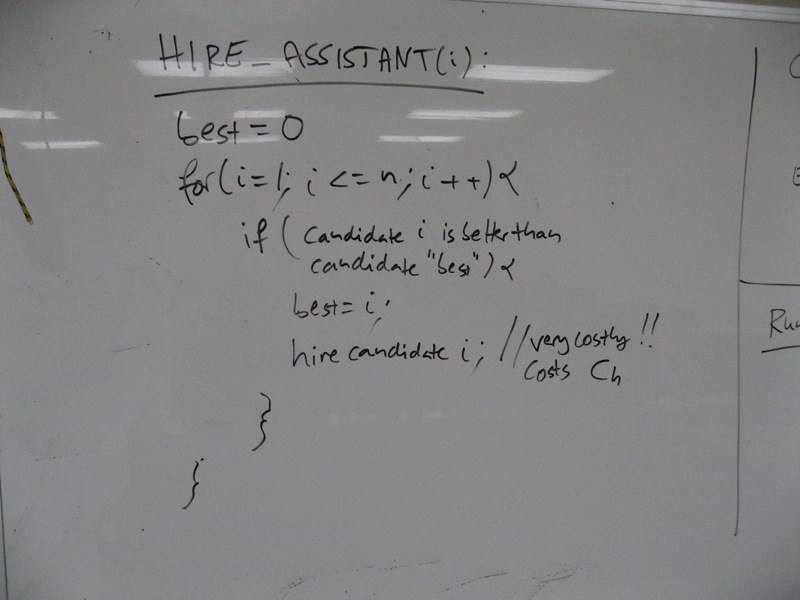 HIRE_ASSISTANT(i):
best = 0
for(i=1; i <= n; i++){
if (candidate i is better than
candidate "best"){
best = i;
hire candidate i; //very costly!!
costs Ch
}
}